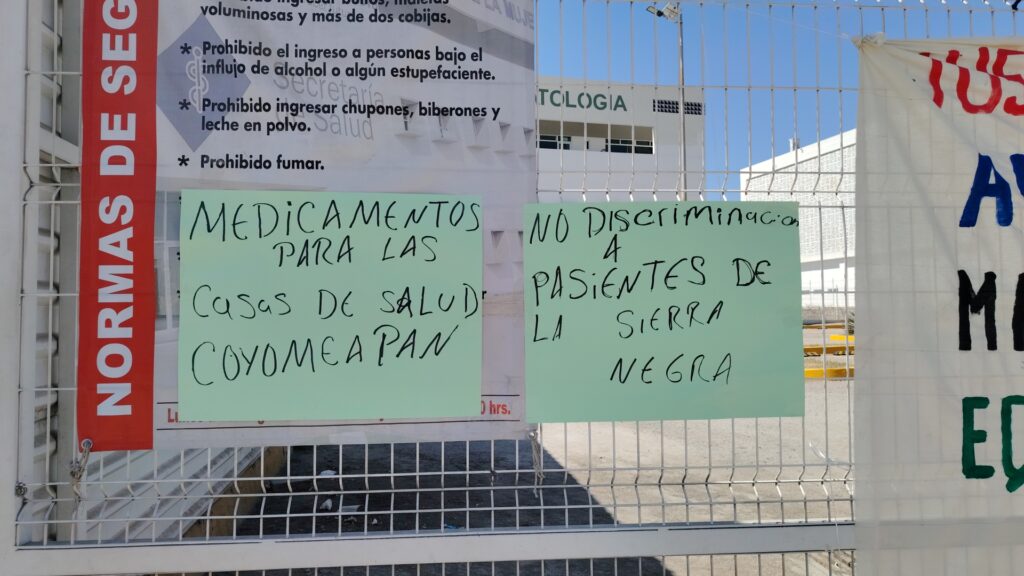 NORMAS DE SEG
voluminosas y más de dos cobijas.
* Prohibido el ingreso a personas bajo el
influjo de alcohol o algún estupefaciente.
* Prohibido ingresar chupones, biberones y
leche en polvo.
* Prohibido fumar.
Secretaría
de Salud
0 hrs.
MEDICAMENTOS
PARA LAS
CASAS DE SALUD
COYOMEAPAN
NO DISCRIMINACION
A
PASIENTES DE
LA SIERRA
NEGRA
TOLOGIA
TUS
AV
ME